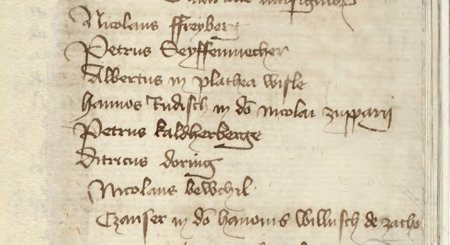 Nicolaus ffreyberg
Petrus Seyffenmecher
Albertus in plathea wisle
hannos Tudisch in dō Nicolai zupparij
Petrus kaldherberge
Ditricus doring
Nicolaus bewchil
Czanser in dō hanonis willusch de zacho